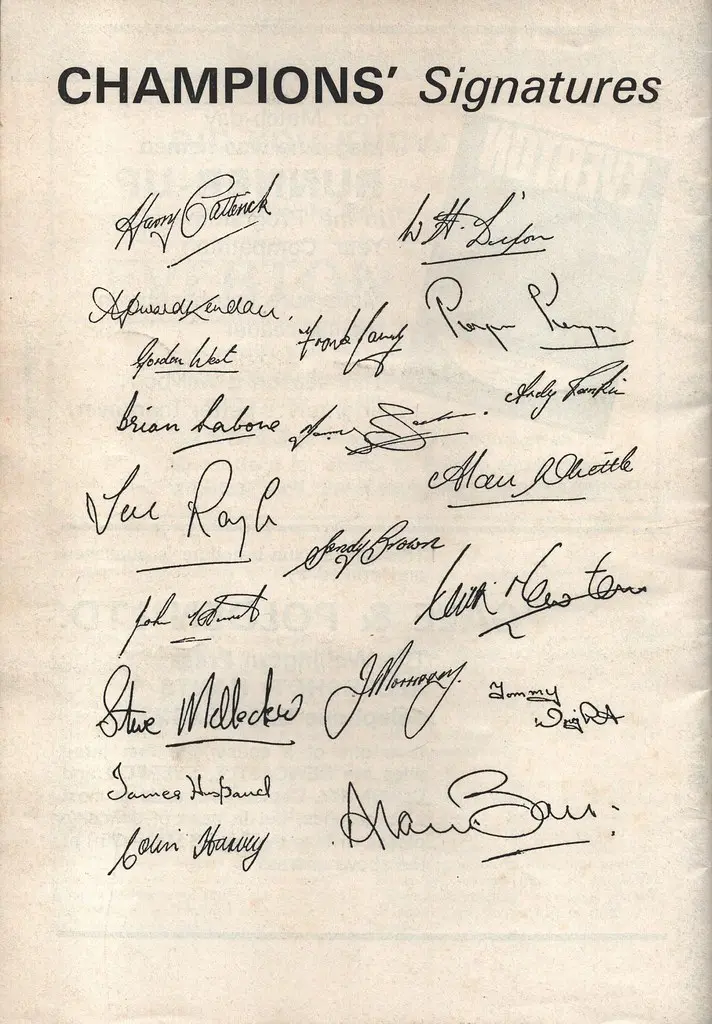 CHAMPIONS' Signatures
Harry Catterick
W H. Dixon
Howard Kendall.
Gordon West
Frank
Andy Rankin
Brian Labone
Alan Whittle
Joe Royle
Sandy Brown
John Hurst
Keith Newton
Steve Melledew
J Morrissey.
Tommy
Wright
James Husband
Colin Harvey
Alan Ball.